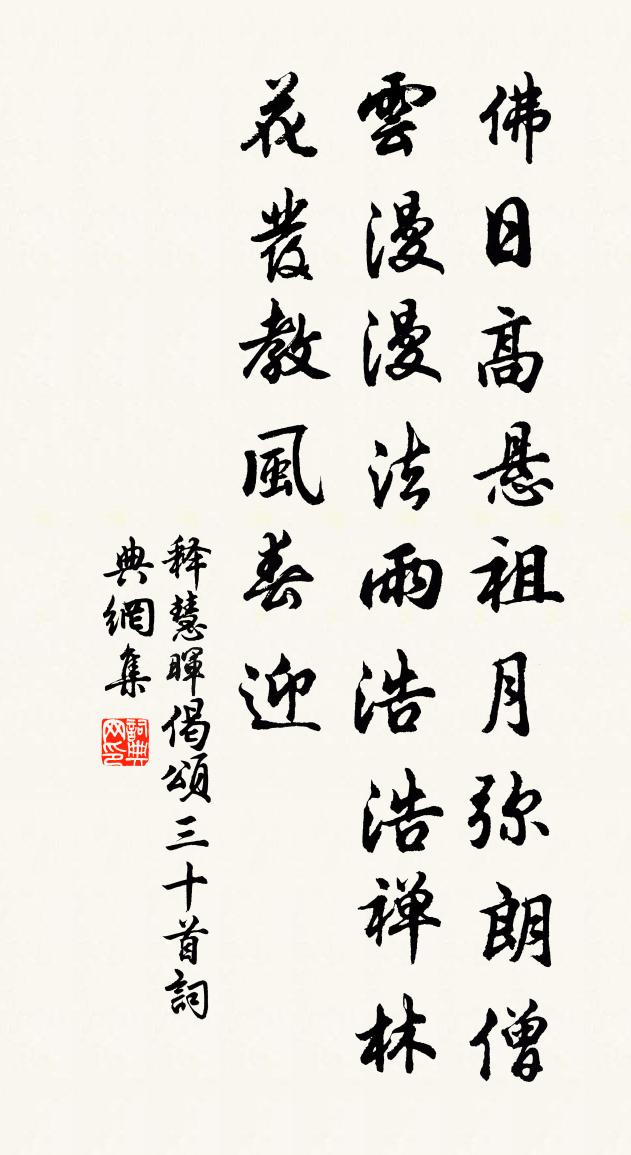 佛日高悬祖月弥朗僧
雲漫漫法雨浩浩禅林
花發教風春迎
释慧暉偈頌三十首詞
典網集
詞典
网印